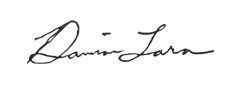 Damian Lara